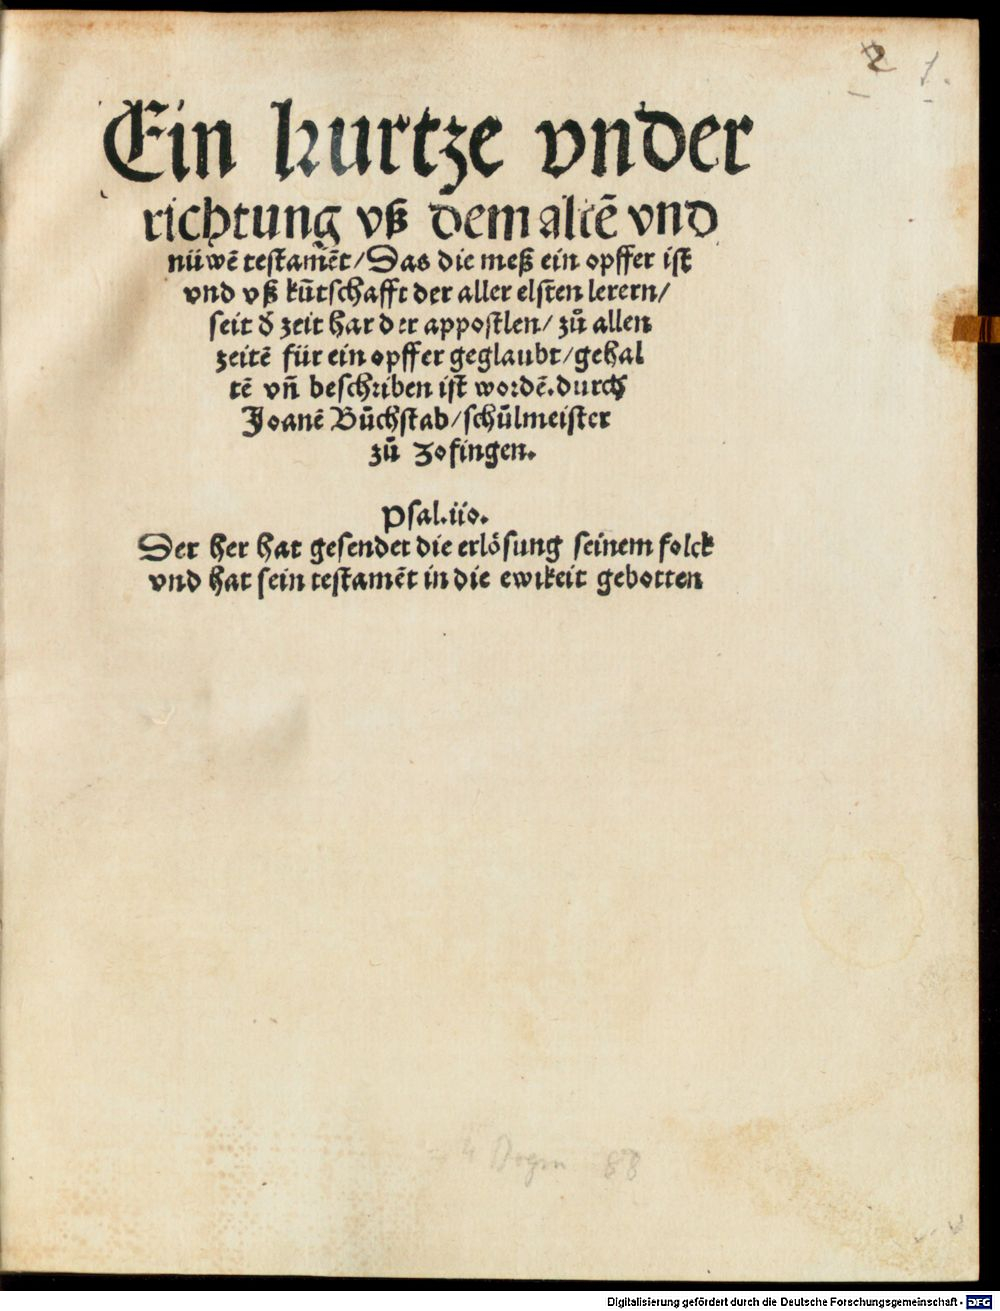 2 1.
Ein kurtze vnder
richtung vß dem altē vnd
nüwē testamēt/Das die meß ein opffer ist
vnd vß kūtschafft der aller elsten lerern/
seit d̕ zeit har der appostlen/ zů allen
zeitē für ein opffer geglaubt/gehal
tē vñ beschriben ist wordē.durch
Joanē Bůchstab/schůlmeister
zů Zofingen.
Psal.iio.
Der her hat gesendet die erlösung seinem folck
vnd hat sein testamēt in die ewikeit gebotten
4 Dogm 88
Digitalisierung gefördert durch die Deutsche Forschungsgemeinschaft - DFG